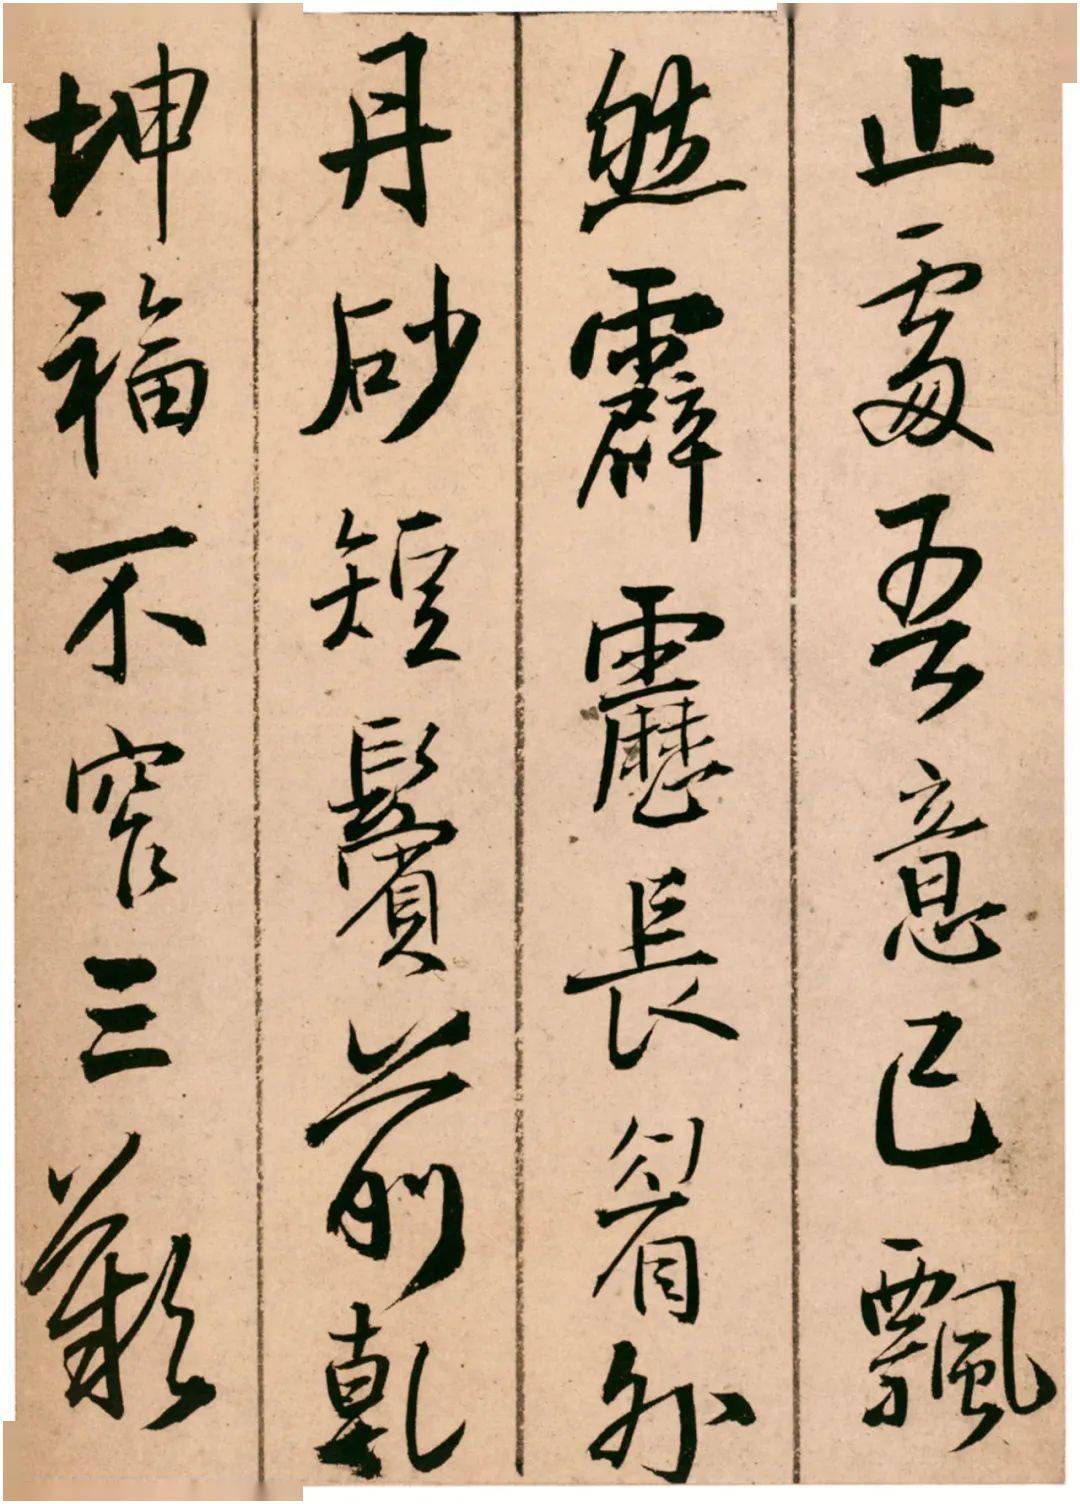 止處吾意已飄
然霹靂長眉外
丹砂短鬢前乾
坤福不窄三歎